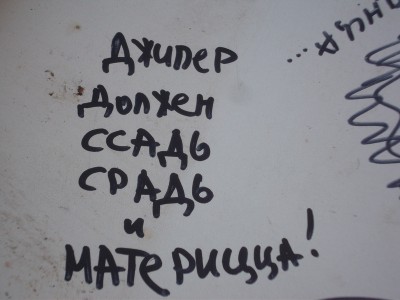 ДЖИПЕР
ДОЛЖЕН
ССАДЬ
СРАДЬ
и
МАТЕРИЦЦА!